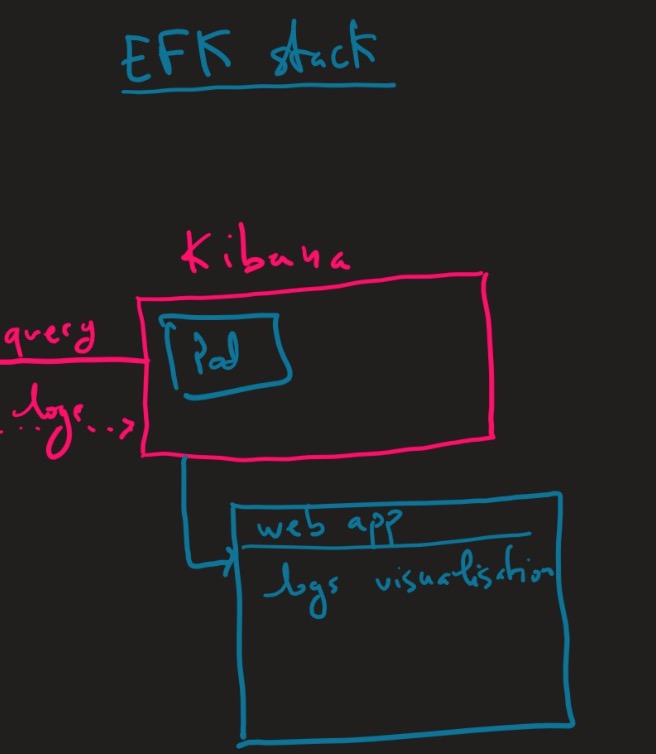 EFK stack
Kibana
query
Pod
logs
web app
logs visualisation